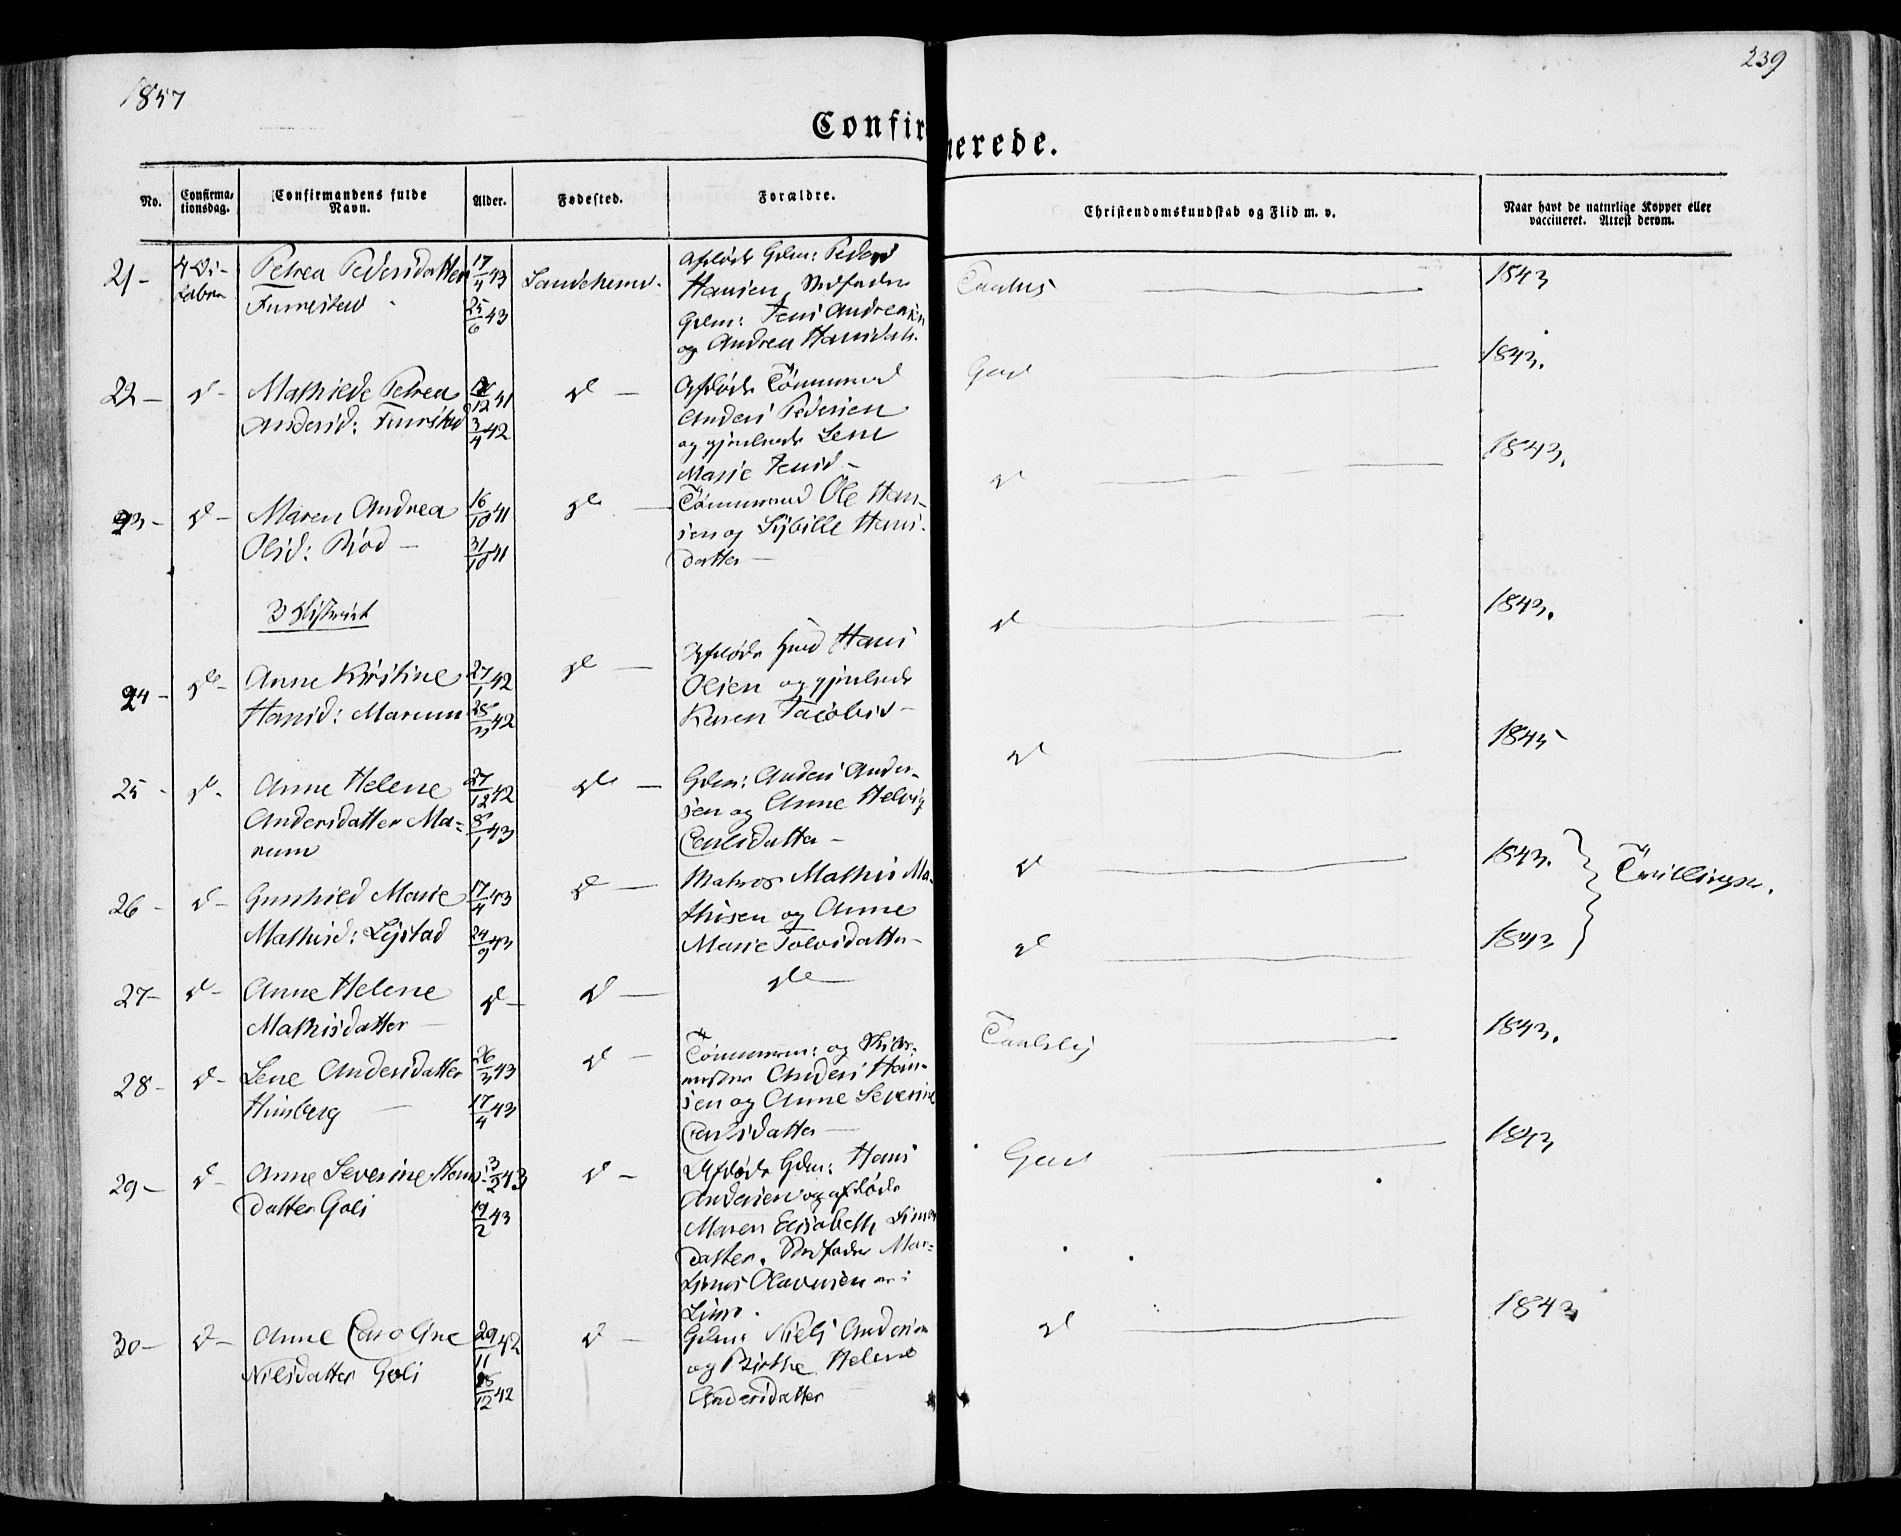 1857
239
Confirmerede.
No.
Confirma-
tionsdag.
Confirmandens fulde
Navn.
Alder.
Fødested.
Forældre.
Christendomskundskab og Flid m. v.
Naar havt de naturlige Kopper eller
vaccineret. Attest derom.
21-
Petrea Pedersdatter
17/4 43
25/6 43
Sandeherred.
Afdøde Gdm: Peder
Hansen, Stedfader
Gdm: Jens Andreasen
og Andrea Hansdatt.
1843
22-
d-
Mathilde Petrea
Andersd: Furustad
12 41
3/4 42
d-
Afdøde Tømmermd
Anders Pedersen
og gjenlevde Lene
Marie Jensd-
God
1843.
23-
d-
Maren Andrea
Olsd: Rød-
16/10 41
31/10 41
d-
Tømmermd Ole Han-
sen og Sybille Hans-
datter-
d
1843.
3 District
24-
d-
Anne Kirstine
Hansd: Marum
27/1 42
28/3 42
d-
Afdøde Hmd Hans
Olsen og gjenlevde
Karen Jacobsd-
d
1843.
25-
d-
Anne Helene
Andersdatter Ma-
rum
27/12 42
8/1 43
d-
Gdm: Anders Ander-
sen og Anne Helvig
Carlsdatter-
d
1845
26-
d-
Gunhild Marie
Mathisd: Lystad
17/4 43
24/9 43
d-
Matros Mathis Ma-
thisen og Anne
Marie Tolvsdatter-
d
1843.
Tvillinger.
27-
d-
Anne Helene
Mathisdatter-
d-
d-
d-
d
1843
28-
d-
Lene Andersdatter
Himberg-
26/3 43
17/4 43
d-
Tømmerm: og
Anders Han-
sen og Anne Severine
Carlsdatter-
1843.
29-
d-
Anne Severine Hans-
datter Goli
3/2 43
19/2 43
d-
Afdøde Gdm: Hans
Andersen og afdøde
Maren Elisabeth Simens
datter. Stedfader Mar-
Olavesen
God
1843
30-
d-
Anne Caroline
Nilsdatter Goli
29/11 42
12 42
d-
Gdm: Niels Andersen
og Birthe Helene
Andersdatter
d
1843